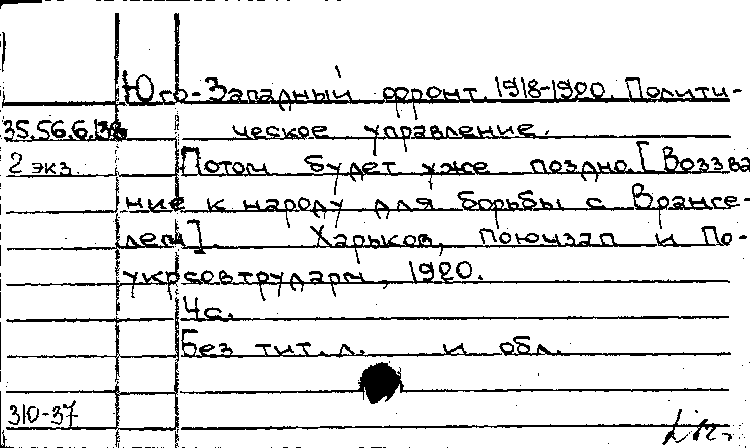 Юго-Западный фронт. 1918-1920. Полити-
35.56.6.138 ческое управление.
2 экз. Потом будет уже поздно. [Воззва
ние к народу для борьбы с Вранге-
лем]. Харьков, Поюжзап и По-
укрсовтрударм, 1920.
4с.
Без тит. л. и обл.
310-37